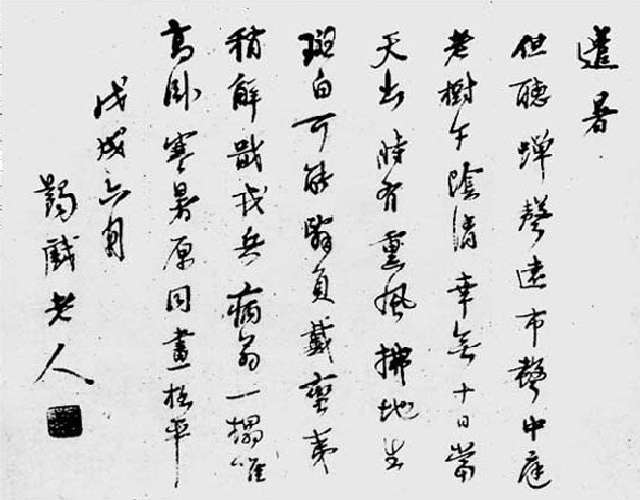 遣暑
但聽蟬聲遠市聲中庭
老樹午陰清幸無十日當
天出時有薰風拂地生
斑白可能辭負戴蠻夷
稍解戢戎兵病翁一榻唯
高卧寒暑原同晝枕平
戊戌六月
蠲戲老人